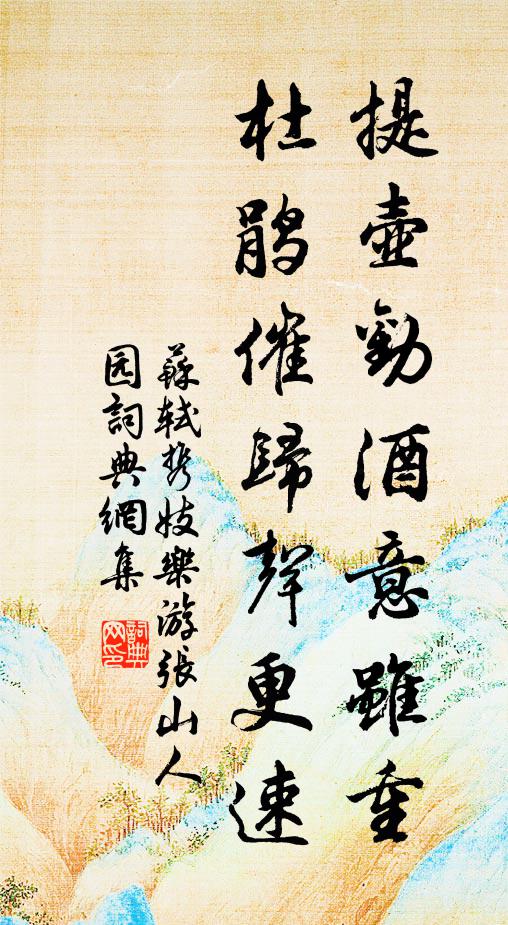 提壺勸酒意雖重
杜鵑催歸聲更速
蘇軾携妓樂游張山人
园詞典網集
詞典网印